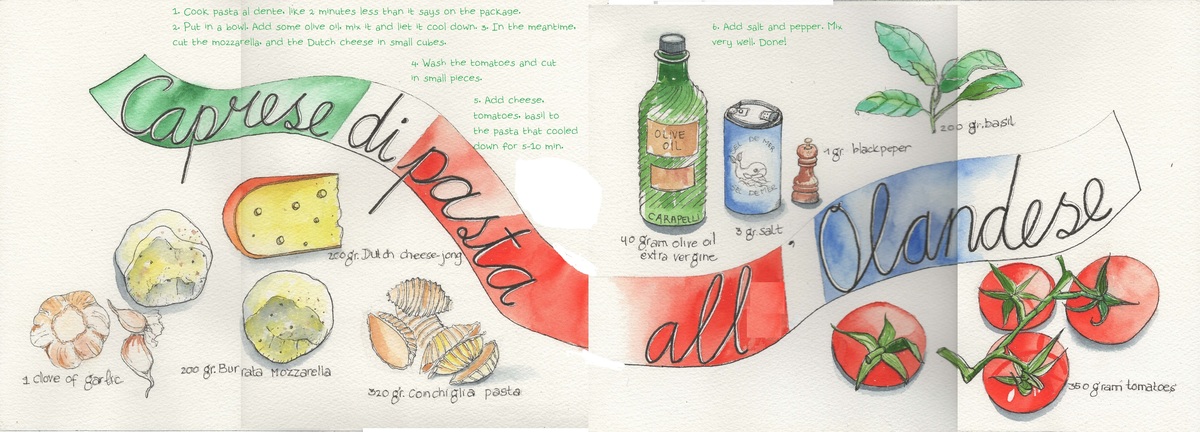 1. Cook pasta al dente, like 2 minutes less than it says on the package.
2. Put in a bowl. Add some olive oil, mix it and liet it cool down. 3. In the meantime,
cut the mozzarella, and the Dutch cheese in small cubes.
4. Wash the tomatoes and cut
in small pieces.
5. Add cheese,
tomatoes, basil to
the pasta that cooled
down for 5-10 min.
6. Add salt and pepper. Mix
very well. Done!
Caprese di pasta all'Olandese
OLIVE
OIL
CARAPELLI
40 gram olive oil
extra vergine
DE MER
SEL DE MER
3 gr. salt
1 gr. blackpeper
200 gr. basil
200 gr. Dutch cheese-jong
1 clove of garlic
200 gr. Burrata Mozzarella
320 gr. Conchiglia pasta
350 gram tomatoes